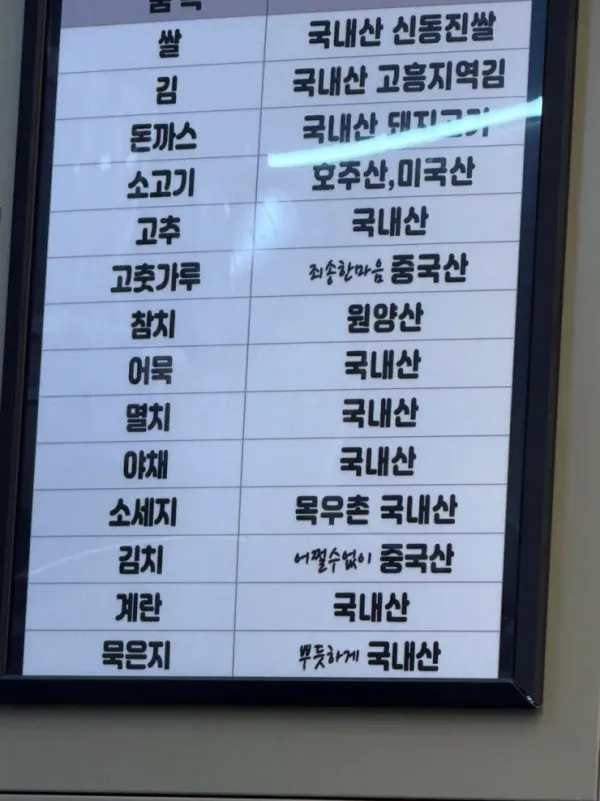 품목
쌀 국내산 신동진쌀
김 국내산 고흥지역김
돈까스 국내산 돼지고기
소고기 호주산,미국산
고추 국내산
고춧가루 죄송한마음 중국산
참치 원양산
어묵 국내산
멸치 국내산
야채 국내산
소세지 목우촌 국내산
김치 어쩔수없이 중국산
계란 국내산
묵은지 뿌듯하게 국내산